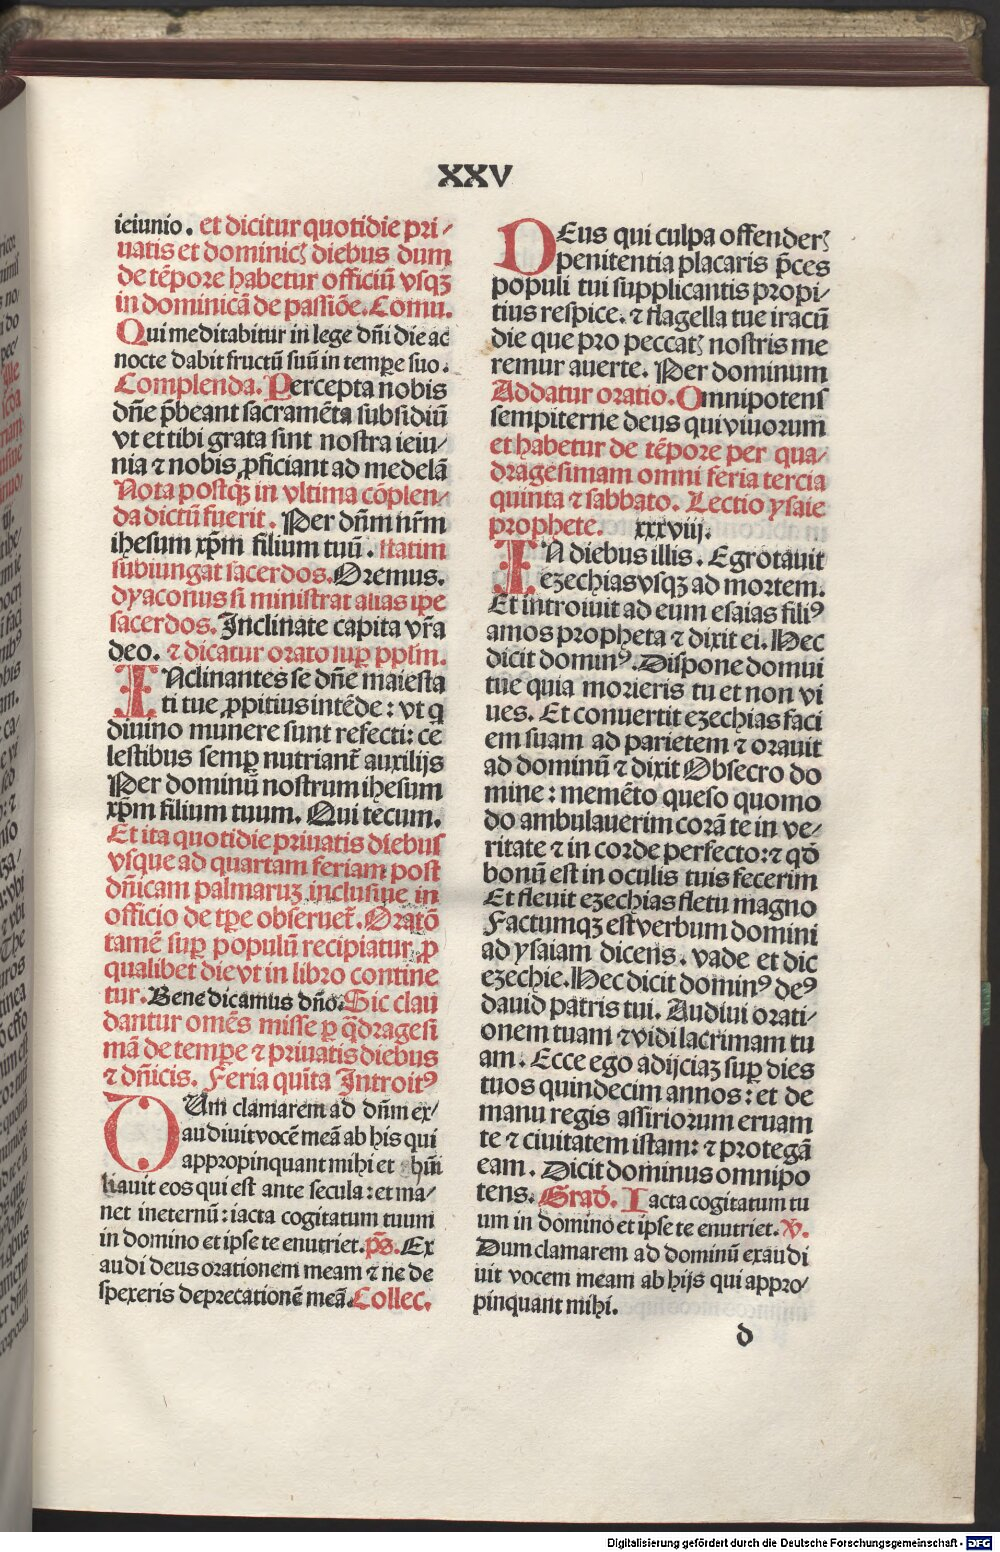 XXV
ieiunio. et dicitur quotidie pri⸗
uatis et dominicꝭ diebus dum
de tẽpore habetur officiũ vsqꝫ
in dominicã de passiõe. Comu.
Qui meditabitur in lege dñi die ac
nocte dabit fructũ suũ in tempꝛe suo.
Complenda. Percepta nobis
dñe p̃beant sacramẽta subsidiũ
vt et tibi grata sint nostra ieiu⸗
nia ⁊ nobis ꝓficiant ad medelã
Nota postqꝫ in vltima cõplen⸗
da dictũ fuerit. Per dñm nr̃m
ihesum xp̃m filium tuũ. statim
subiungat sacerdos. Oremus.
dyaconus si ministrat alias ipe
sacerdos. Inclinate capita vr̃a
deo. ⁊ dicatur orato sup̱ pplm̄.
INclinantes se dñe maiesta
ti tue ꝓpitius intẽde: vt q
diuino munere sunt refecti: ce
lestibus semp̱ nutriant̃ auxilijs
Per dominũ nostrum ihesum
xp̃m filium tuum. Qui tecum.
Et ita quotidie priuatis diebus
vsque ad quartam feriam post
dñicam palmaruꝫ inclusiue in
officio de tp̱e obseruet̃. Oratõ
tamẽ sup̱ populũ recipiatur p̱
qualibet die vt in libro contine
tur. Bene dicamus dño. Sic clau
dantur omẽs misse p̱ q̃dragesi
mã de temp̱e ⁊ priuatis diebus
⁊ dñicis. Feria quĩta Introitꝰ
DUm clamarem ad dñm ex⸗
audiuit vocẽ meã ab his qui
appropinquant mihi et hũi
liauit eos qui est ante secula: et ma⸗
net ineternũ: iacta cogitatum tuum
in domino et ipse te enutriet. p̃s. Ex
audi deus orationem meam ⁊ ne de
spexeris deprecationẽ meã. Collec.
DEus qui culpa offenderꝭ
penitentia placaris p̃ces
populi tui supplicantis propi⸗
tius respice. ⁊ flagella tue iracũ
die que pro peccatꝭ nostris me
remur auerte. Per dominum
Addatur oratio. Omnipotens
sempiterne deus qui viuorum
et habetur de tẽpore per qua⸗
dragesimam omni feria tercia
quinta ⁊ sabbato. Lectio ysaie
prophete. xxxviij.
IN diebus illis. Egrotauit
ezechias vsqꝫ ad mortem.
Et introiuit ad eum esaias filiꝰ
amos propheta ⁊ dixit ei. Hec
dicit dominꝰ. Dispone domui
tue quia morieris tu et non vi
ues. Et conuertit ezechias faci
em suam ad parietem ⁊ orauit
ad dominũ ⁊ dixit Obsecro do
mine: memẽto queso quomo
do ambulauerim corã te in ve⸗
ritate ⁊ in corde perfecto: ⁊ qd̃
bonũ est in oculis tuis fecerim
Et fleuit ezechias fletu magno
Factumqꝫ est verbum domini
ad ysaiam dicens. vade et dic
ezechie. Hec dicit dominꝰ deꝰ
dauid patris tui. Audiui orati⸗
onem tuam ⁊ vidi lacrimam tu
am. Ecce ego adijciaꝫ sup̱ dies
tuos quindecim annos: et de
manu regis assiriorum eruam
te ⁊ ciuitatem istam: ⁊ protegã
eam. Dicit dominus omnipo
tens. Grad̃. Iacta cogitatum tu
um in domino et ipse te enutriet. ℣.
Dum clamarem ad dominũ exaudi
uit vocem meam ab hijs qui appro⸗
pinquant mihi.
d
Digitalisierung gefördert durch die Deutsche Forschungsgemeinschaft - DFG